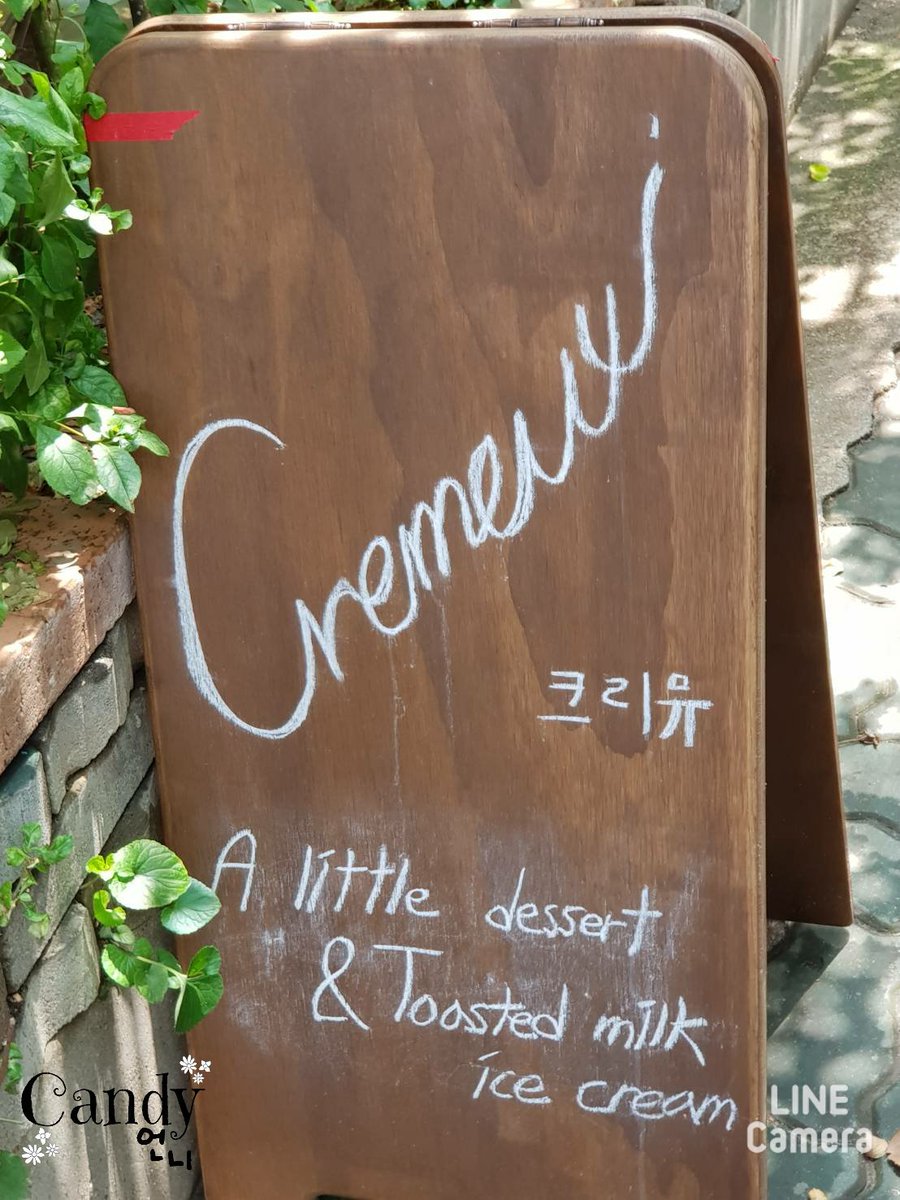 Cremeux
크리뮤
A little dessert
& Toasted milk
ice cream
Candy
언니
LINE
Camera